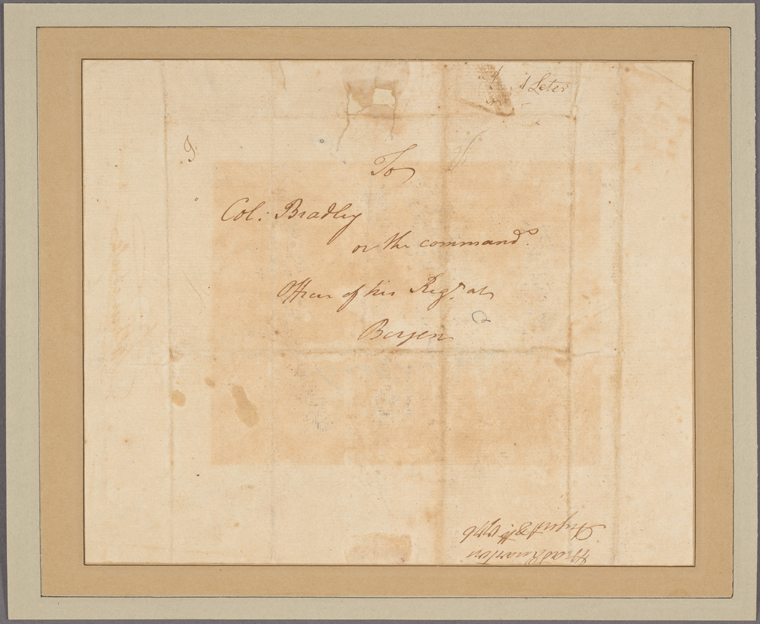 A Leter
To
Col: Bradley
or the command.g
Officer of his Reg.t at
Bergen
Head Quarters
August 8 1776